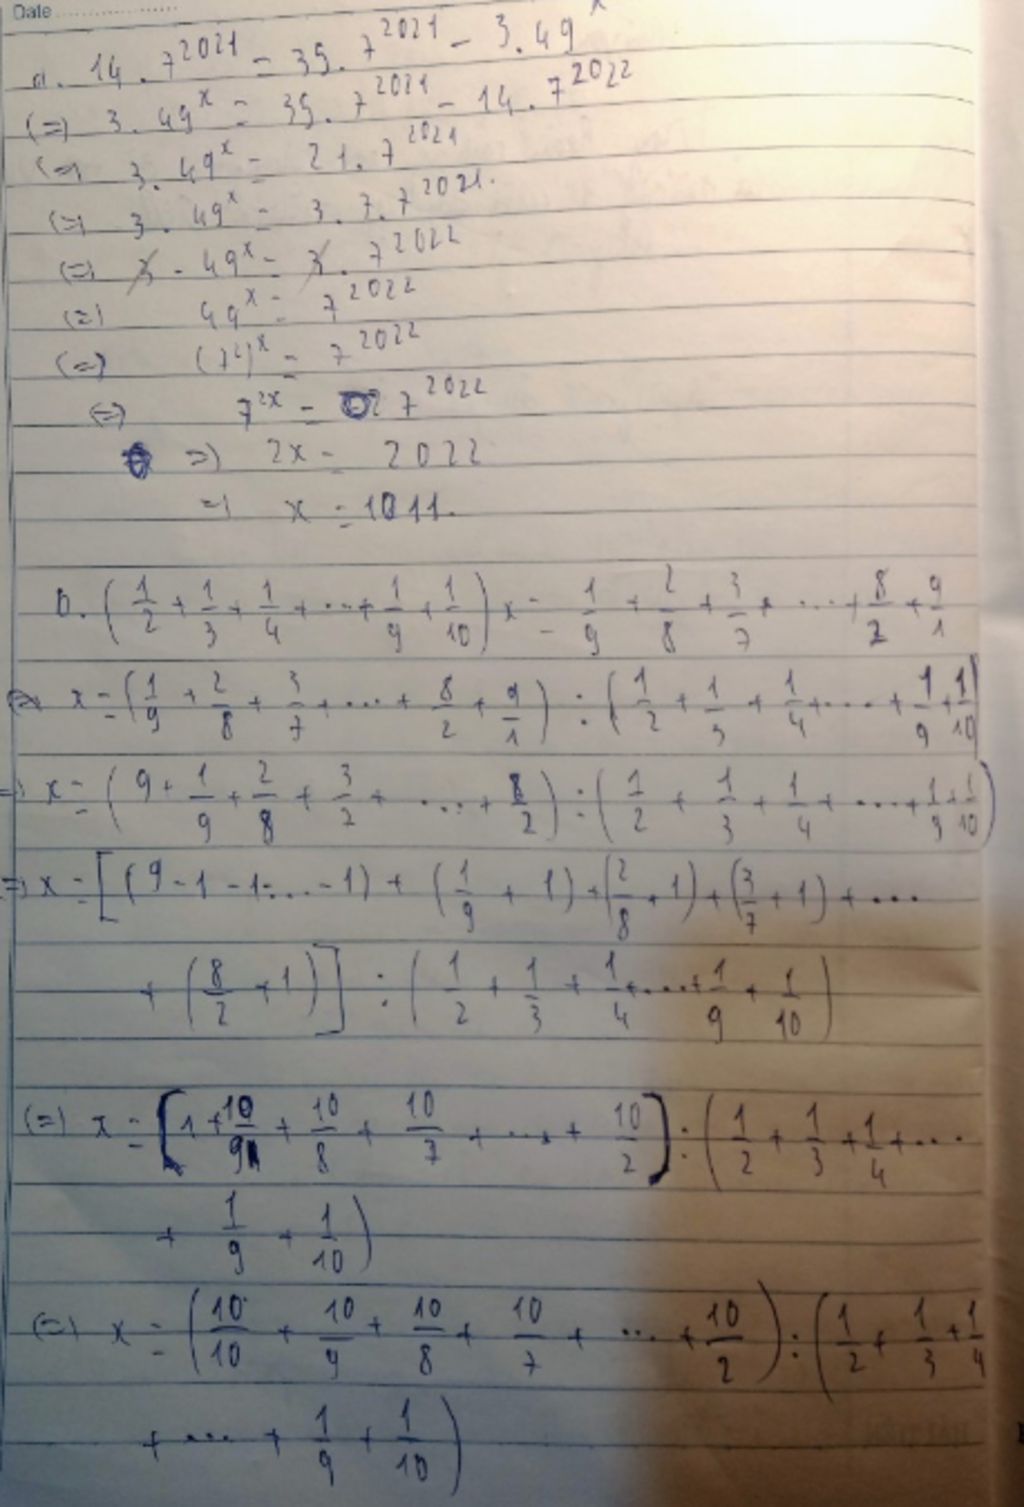 Date
a. 14 . 7^2021 = 35 . 7^2021 - 3 . 49^x
(=) 3 . 49^x = 35 . 7^2021 - 14 . 7^2022
(=) 3 . 49^x = 21 . 7^2021
(=) 3 . 49^x = 3 . 7 . 7^2021.
(=) 3 . 49^x = 3 . 7^2022
(=) 49^x = 7^2022
(=) (7^2)^x = 7^2022
(=) 7^2x = 7^2022
=) 2x = 2022
=) x = 1011.
b. (1/2 + 1/3 + 1/4 + ... + 1/9 + 1/10) x = 1/9 + 2/8 + 3/7 + ... + 8/2 + 9/1
(=) x = (1/9 + 2/8 + 3/7 + ... + 8/2 + 9/1) : (1/2 + 1/3 + 1/4 + ... + 1/9 + 1/10)
=) x = (9 + 1/9 + 2/8 + 3/7 + ... + 8/2) : (1/2 + 1/3 + 1/4 + ... + 1/9 + 1/10)
(=) x = [(9 - 1 - 1 - ... - 1) + (1/9 + 1) + (2/8 + 1) + (3/7 + 1) + ...
+ (8/2 + 1)] : (1/2 + 1/3 + 1/4 + ... + 1/9 + 1/10)
(=) x = [1 + 10/9 + 10/8 + 10/7 + ... + 10/2] : (1/2 + 1/3 + 1/4 + ...
+ 1/9 + 1/10)
(=) x = (10/10 + 10/9 + 10/8 + 10/7 + ... + 10/2) : (1/2 + 1/3 + 1/4
+ ... + 1/9 + 1/10)